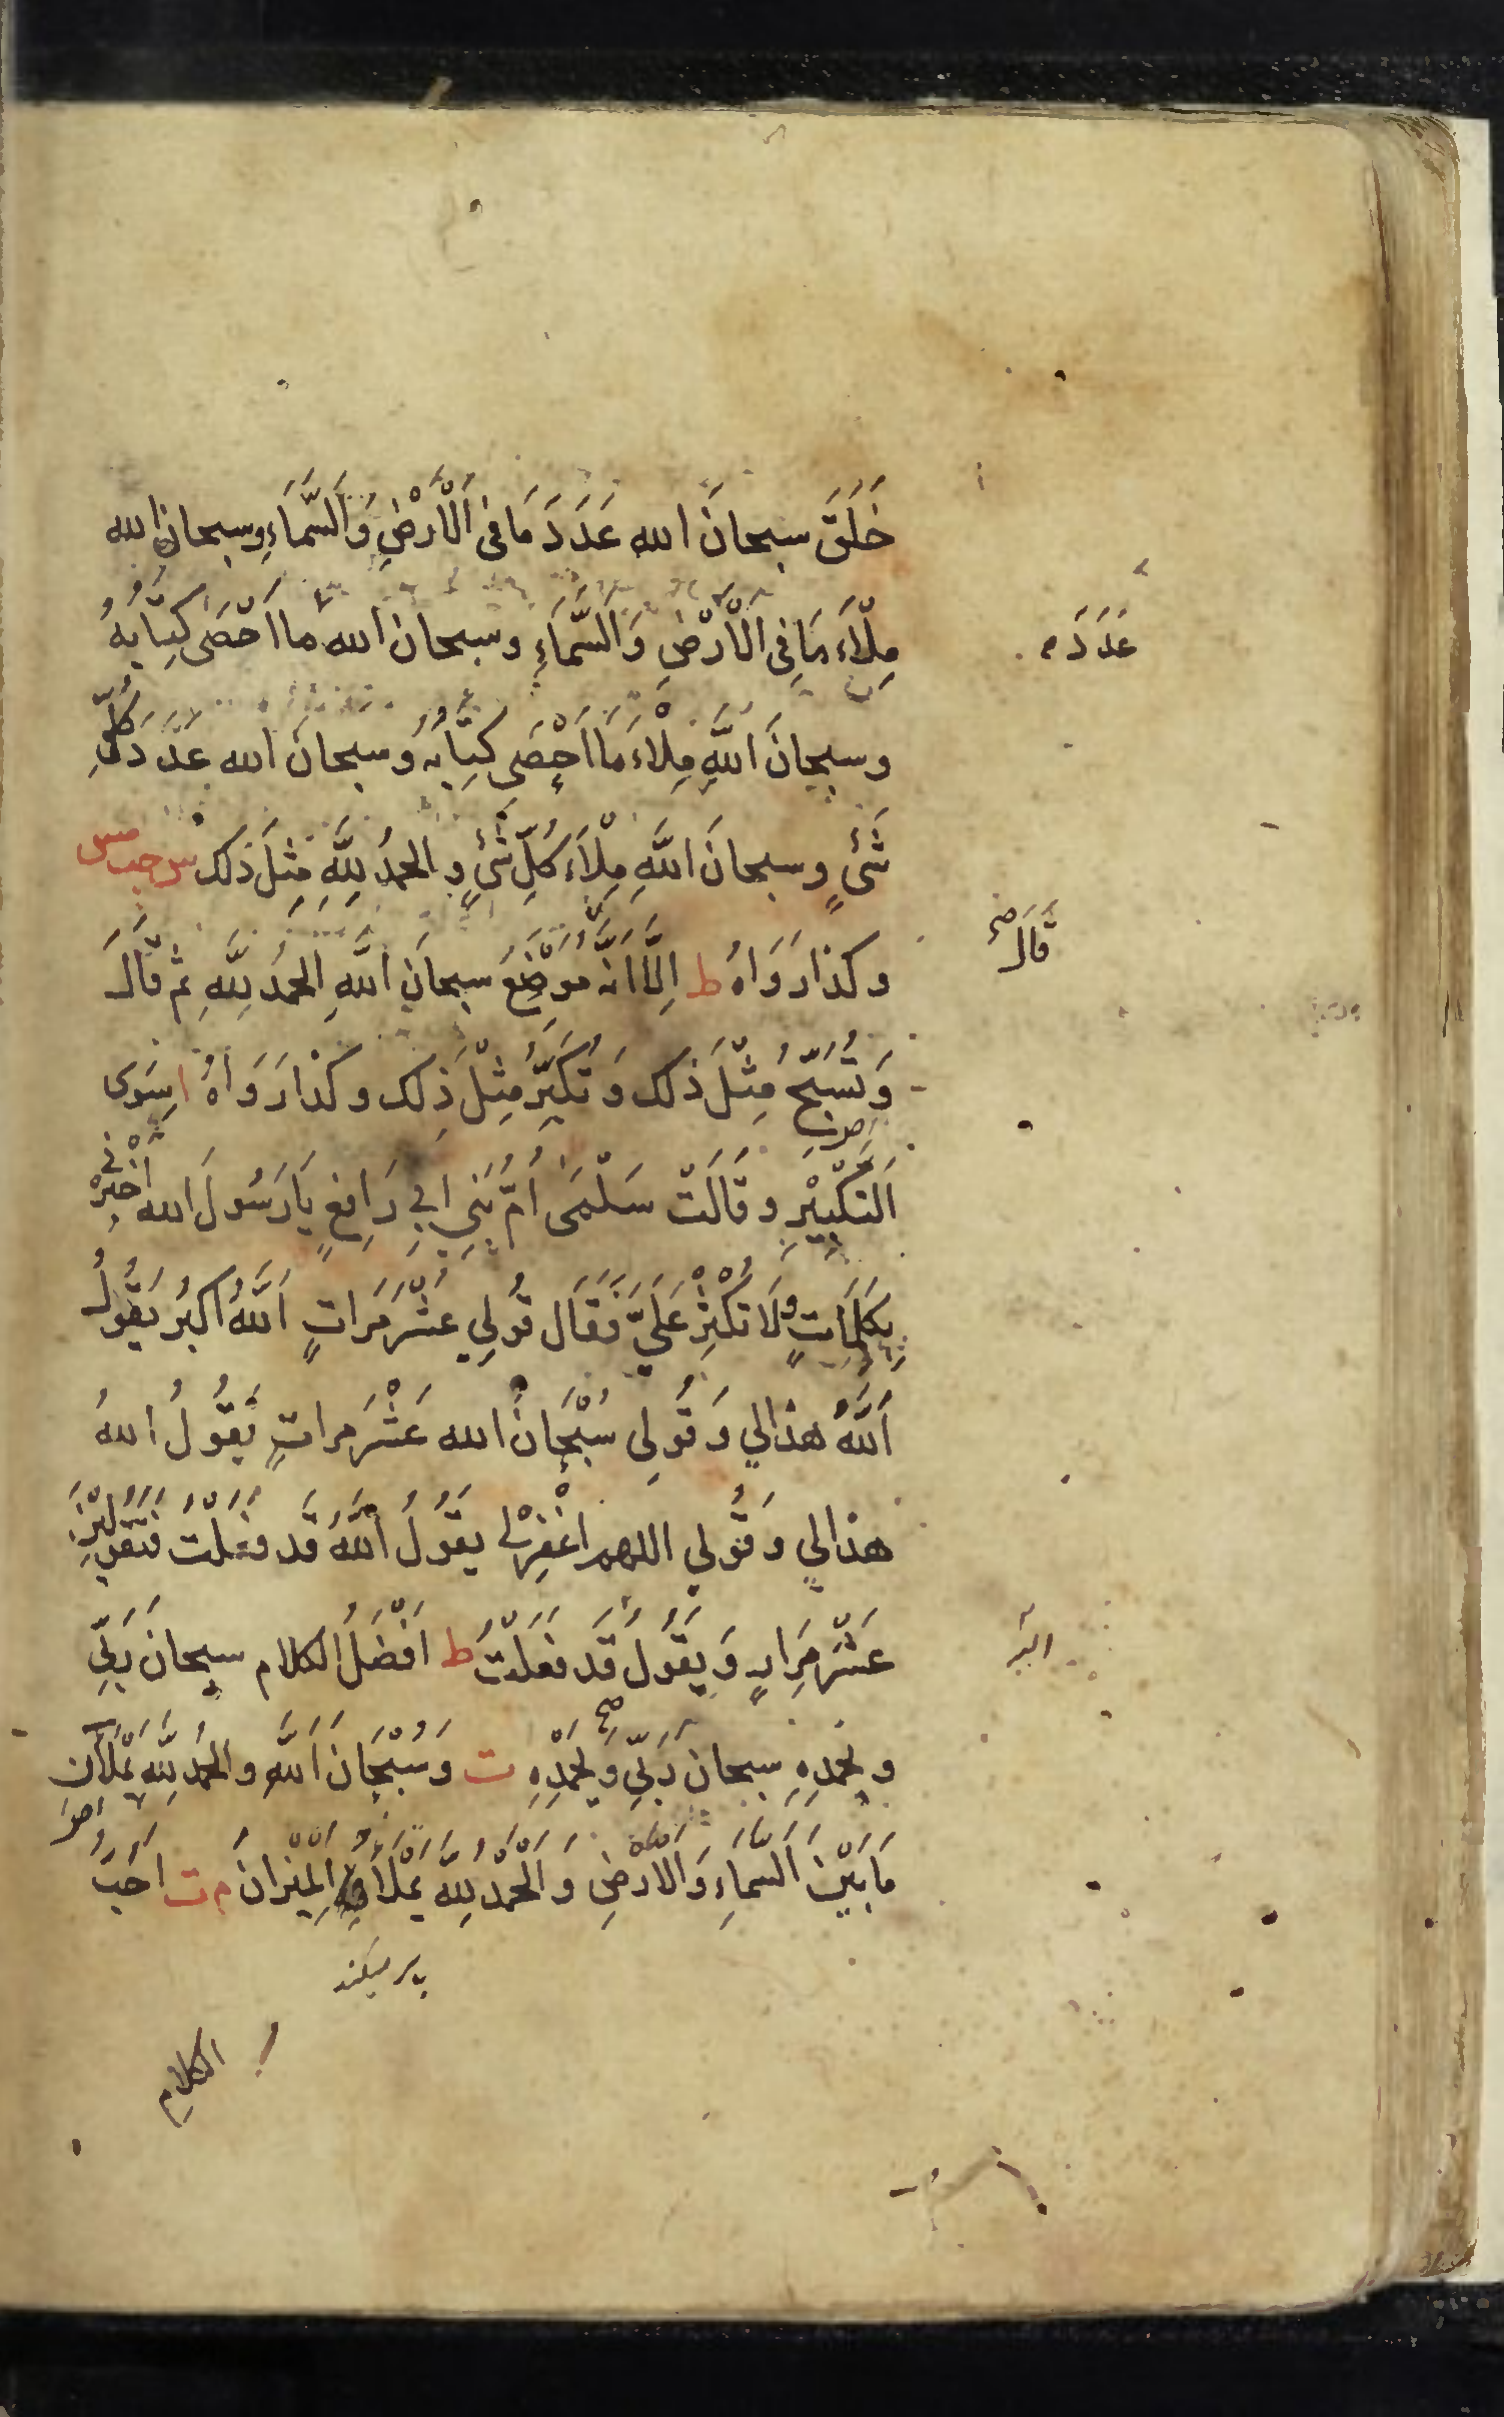 خَلَقَ سبحانَ الله عَدَدَ مَا فى الْاَرْضِ وَالسَّمَاءِ وسبحان الله
مِلْاَءَ مَا فِى الْاَرْضِ وَالسَّمَاءِ وسبحان الله ما اَحْصَى كِتَابُهُ
عَدَدَ م
وسبحانَ اللّٰهِ مِلْاءَ مَا اَحْصَى كِتَابُهُ وسبحانَ الله عَدَدَ كُلِّ
شَىْءٍ وسبحانَ اللّٰهِ مِلْاَءَ كُلِّ شَىْءٍ والحمدُ لِلّٰهِ مِثْلَ ذلك س حب مس
وكذا رَوَاهُ ط اِلَّا اَنَّهُ مَوْضِعَ سبحانَ اللّٰهِ الحمدُ لِلّٰهِ ثم قَالَ
قَالَ صح
وَتُسَبِّحُ مِثْلَ ذلك وَتُكَبِّرُ مِثْلَ ذلِك وكذا رَوَاهُ ا سِوَى
التَّكْبِيْرِ وقَالَتْ سَلْمَى اُمُّ بَنِي ابِي رَافِعٍ يَا رَسُولَ الله اَخْبِرْنِي
بِكَلِمَاتٍ وَلَا تُكْثِرْ عَلَيَّ فَقَالَ قُولِي عَشْرَ مَرَاتٍ اَللّٰهُ اكبرُ يَقُولُ
اَللّٰهُ هذا لي وَقُولِى سُبْحَانَ الله عَشْرَ مراتٍ يَقُولُ اللهُ
هذا لي وَقُولي اللهم اغْفِرْ لِى يَقُولُ اللّٰهُ قَد فعَلْتُ فَتَقُولِيْنَ
عَشْرَ مِرَارٍ وَيَقُولُ قَد فَعَلْتُ ط اَفْضَلُ الكلام سبحانَ رَبِّي
وبحمدِهِ سبحانَ رَبِّي وَبِحَمْدِهِ صح ت وَسُبْحَانَ اللّٰهِ والحَمْدُ لِلّٰهِ تَمْلَآنِ
مَا بَيْنَ السَّمَاءِ وَالْاَرْضِ وَالْحَمْدُ لِلّٰهِ يَمْلَاُ الْمِيْزَانَ م ت اَحَبُّ
پر میکند
الكلام